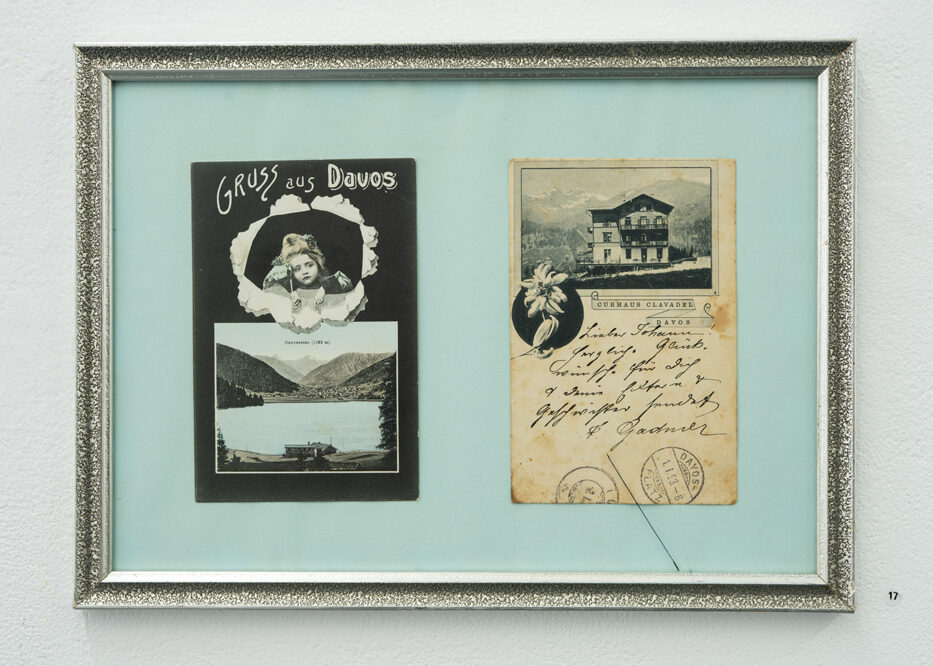 GRUSS aus Davos
Davosersee (1562 m)
CURHAUS CLAVADEL
DAVOS
Lieber Johann.
Herzlich. Glück-
wünsche für Dich
& deine Eltern &
Geschwister sendet
Gadmer
DAVOS-
PLATZ
17